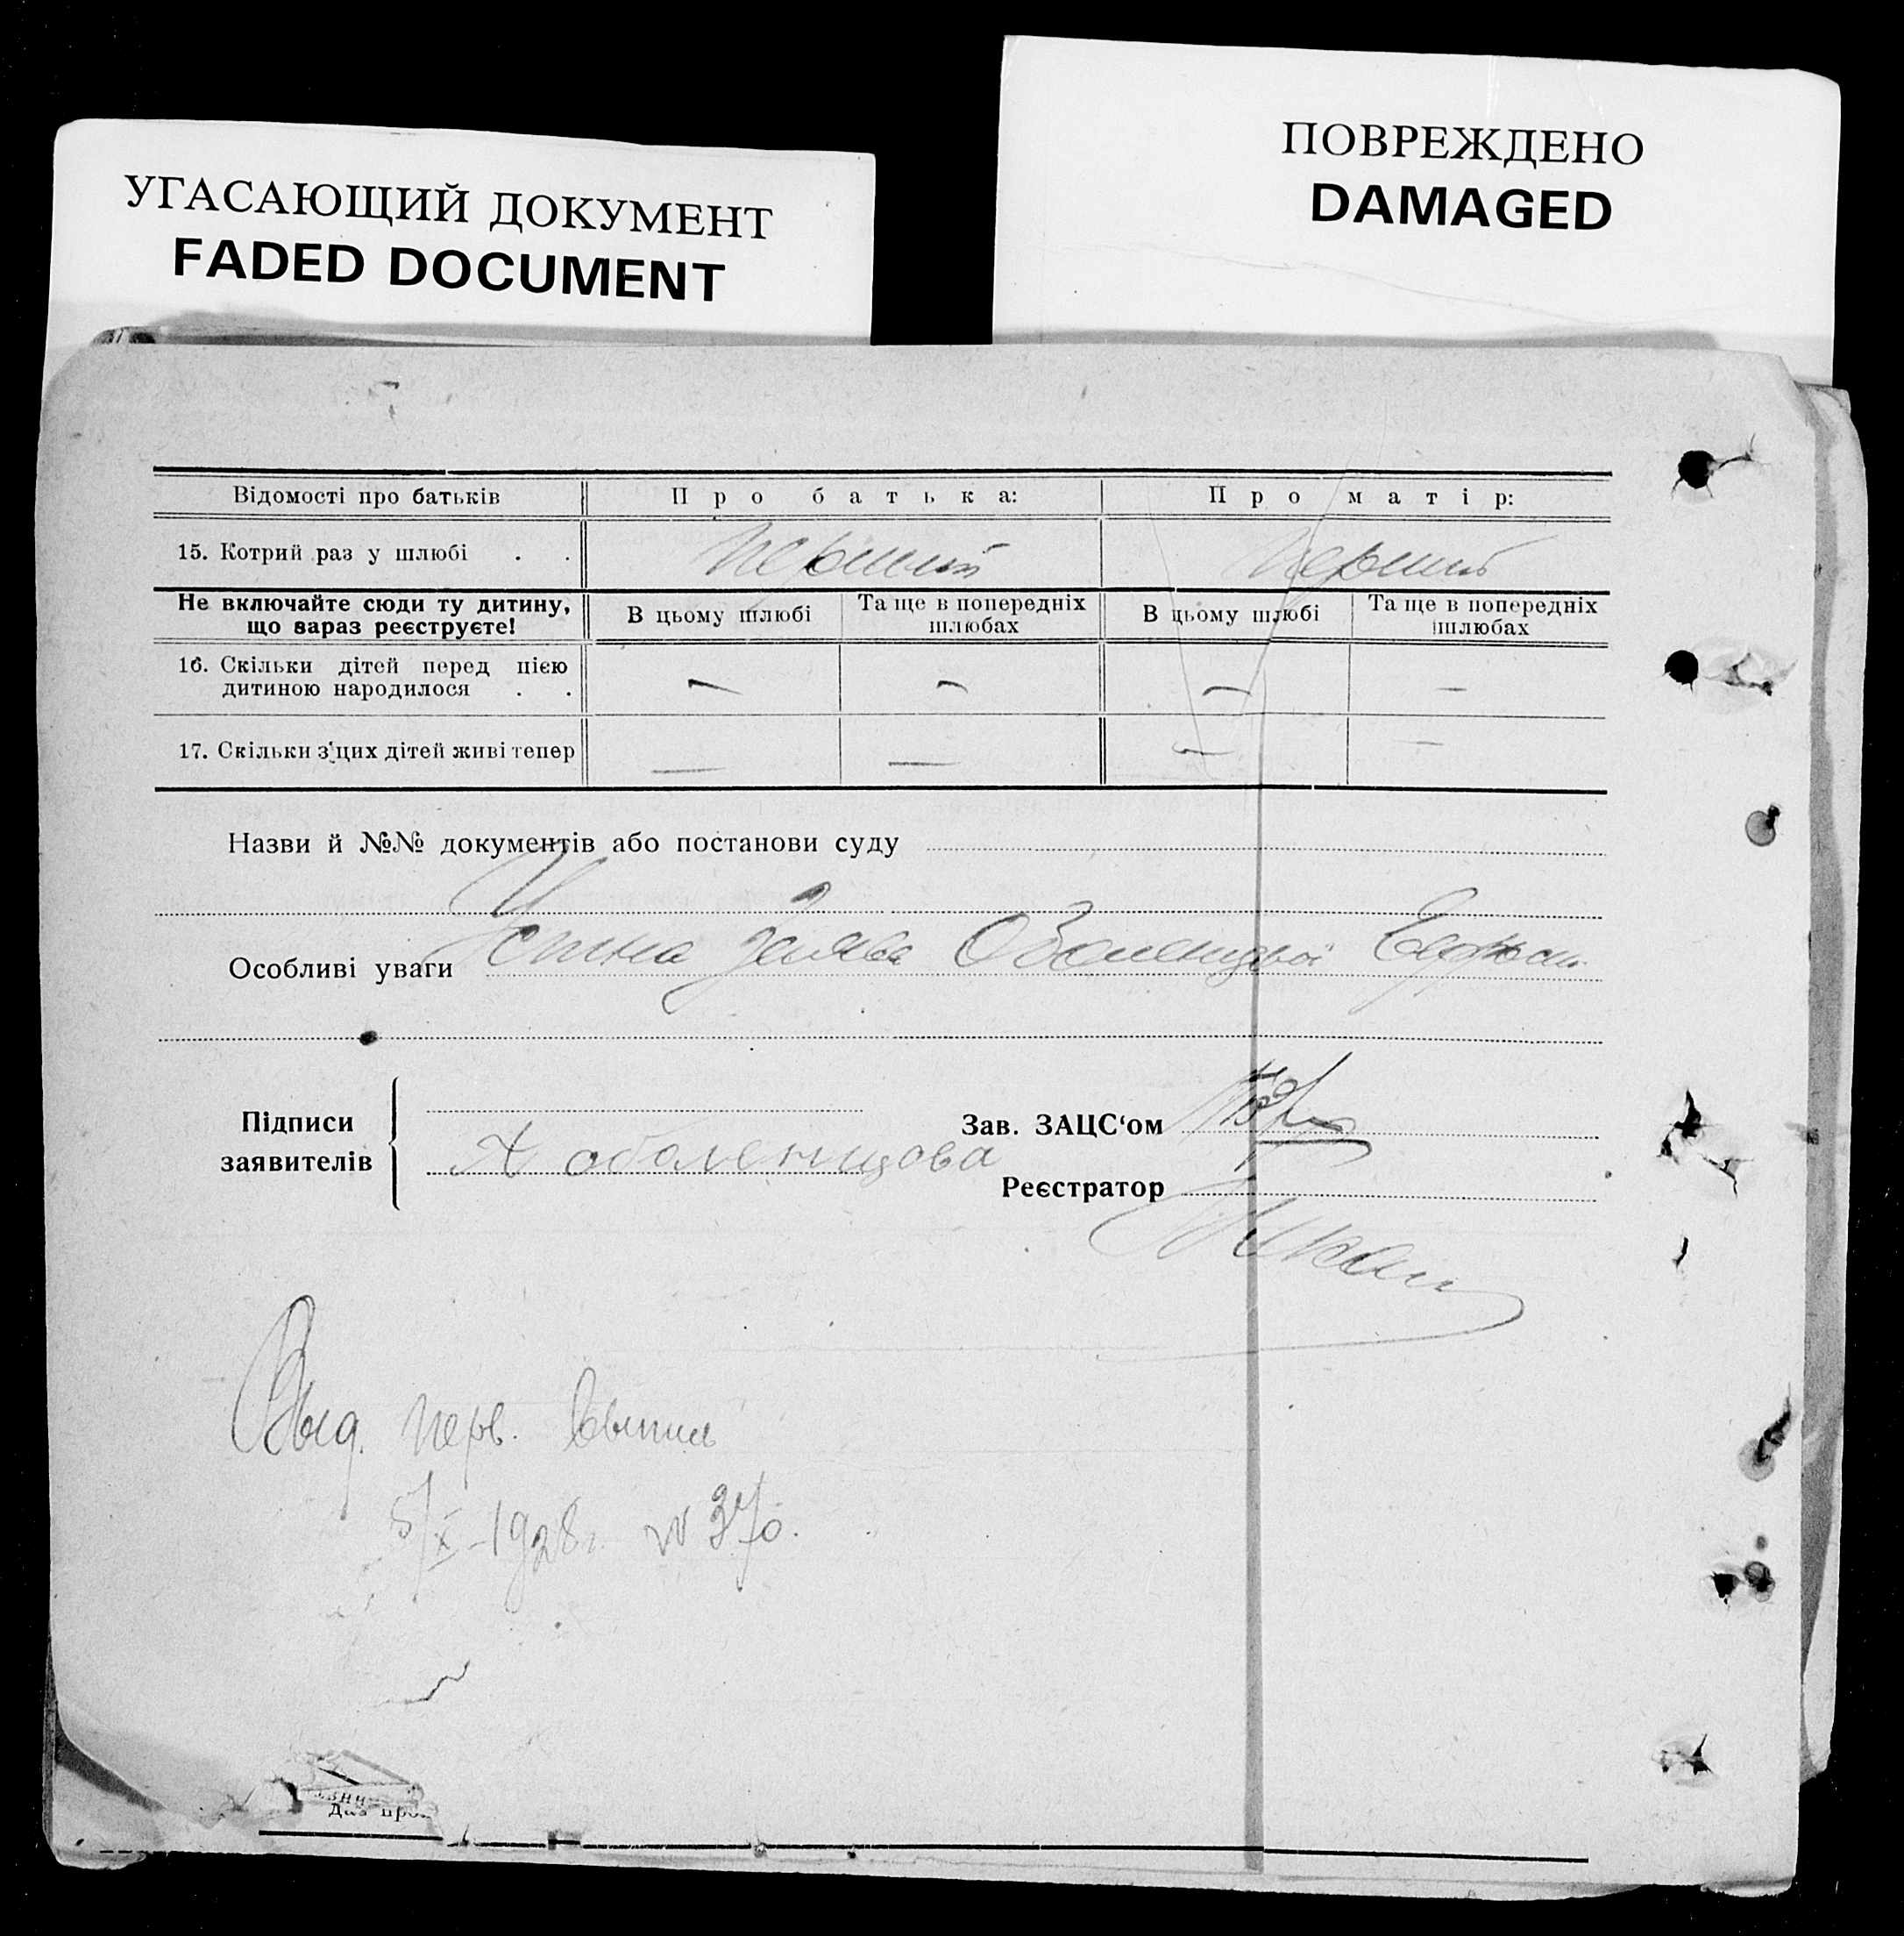 УГАСАЮЩИЙ ДОКУМЕНТ
FADED DOCUMENT
ПОВРЕЖДЕНО
DAMAGED
Відомості про батьків Про батька: Про матір:
15. Котрий раз у шлюбі . . перший перший
Не включайте сюди ту дитину, що вараз реєструєте! В цьому шлюбі Та ще в попередніх шлюбах В цьому шлюбі Та ще в попередніх шлюбах
16. Скільки дітей перед цією
дитиною народилося . . — — — —
17. Скільки з цих дітей живі тепер — — — —
Назви й №№ документів або постанови суду
Устна заява Оболенцевої
Особливі уваги
Підписи
заявителів
А оболенцова
Зав. ЗАЦС‘ом
Реєстратор
Выд. перв. выпись
5/X-1928г. N 370.